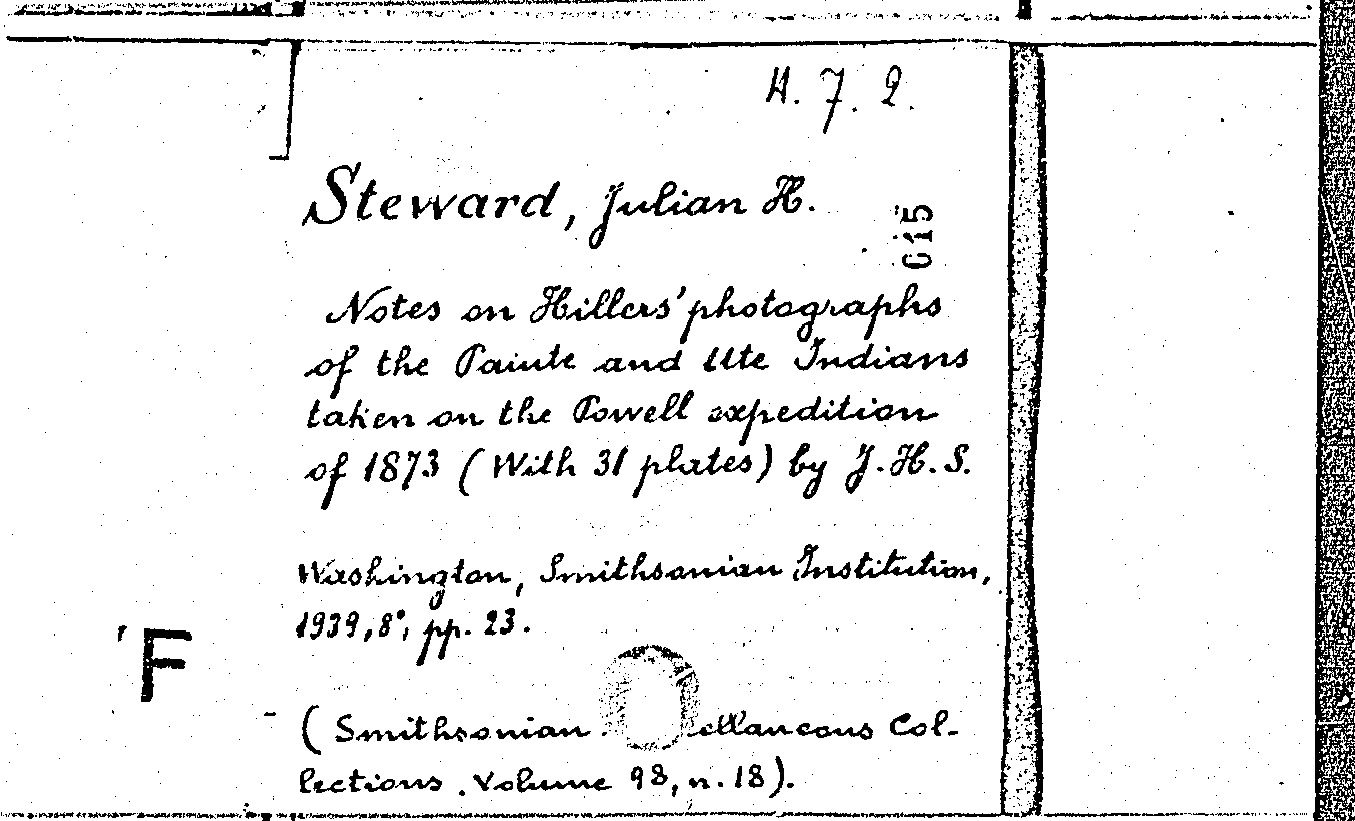 H. 7. 2.
Steward, Julian H.
615
Notes on Hillers' photographs
of the Paiute and Ute Indians
taken on the Powell expedition
of 1873 (With 31 plates) by J. H. S.
Washington, Smithsonian Institution,
1939, 8°, pp. 23.
F
(Smithsonian ellaneous Col-
lections. Volume 98, n. 18).